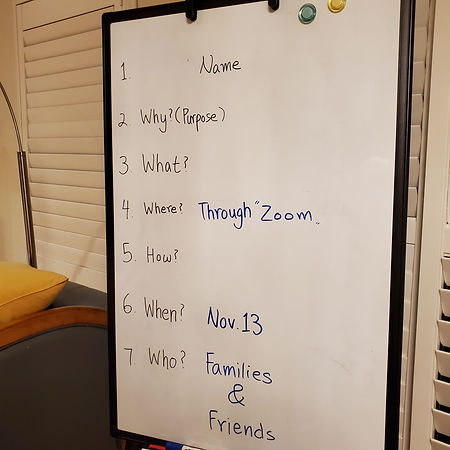 1. Name
2. Why? (Purpose)
3. What?
4. Where? Through "Zoom"
5. How?
6. When? Nov. 13
7. Who? Families
&
Friends